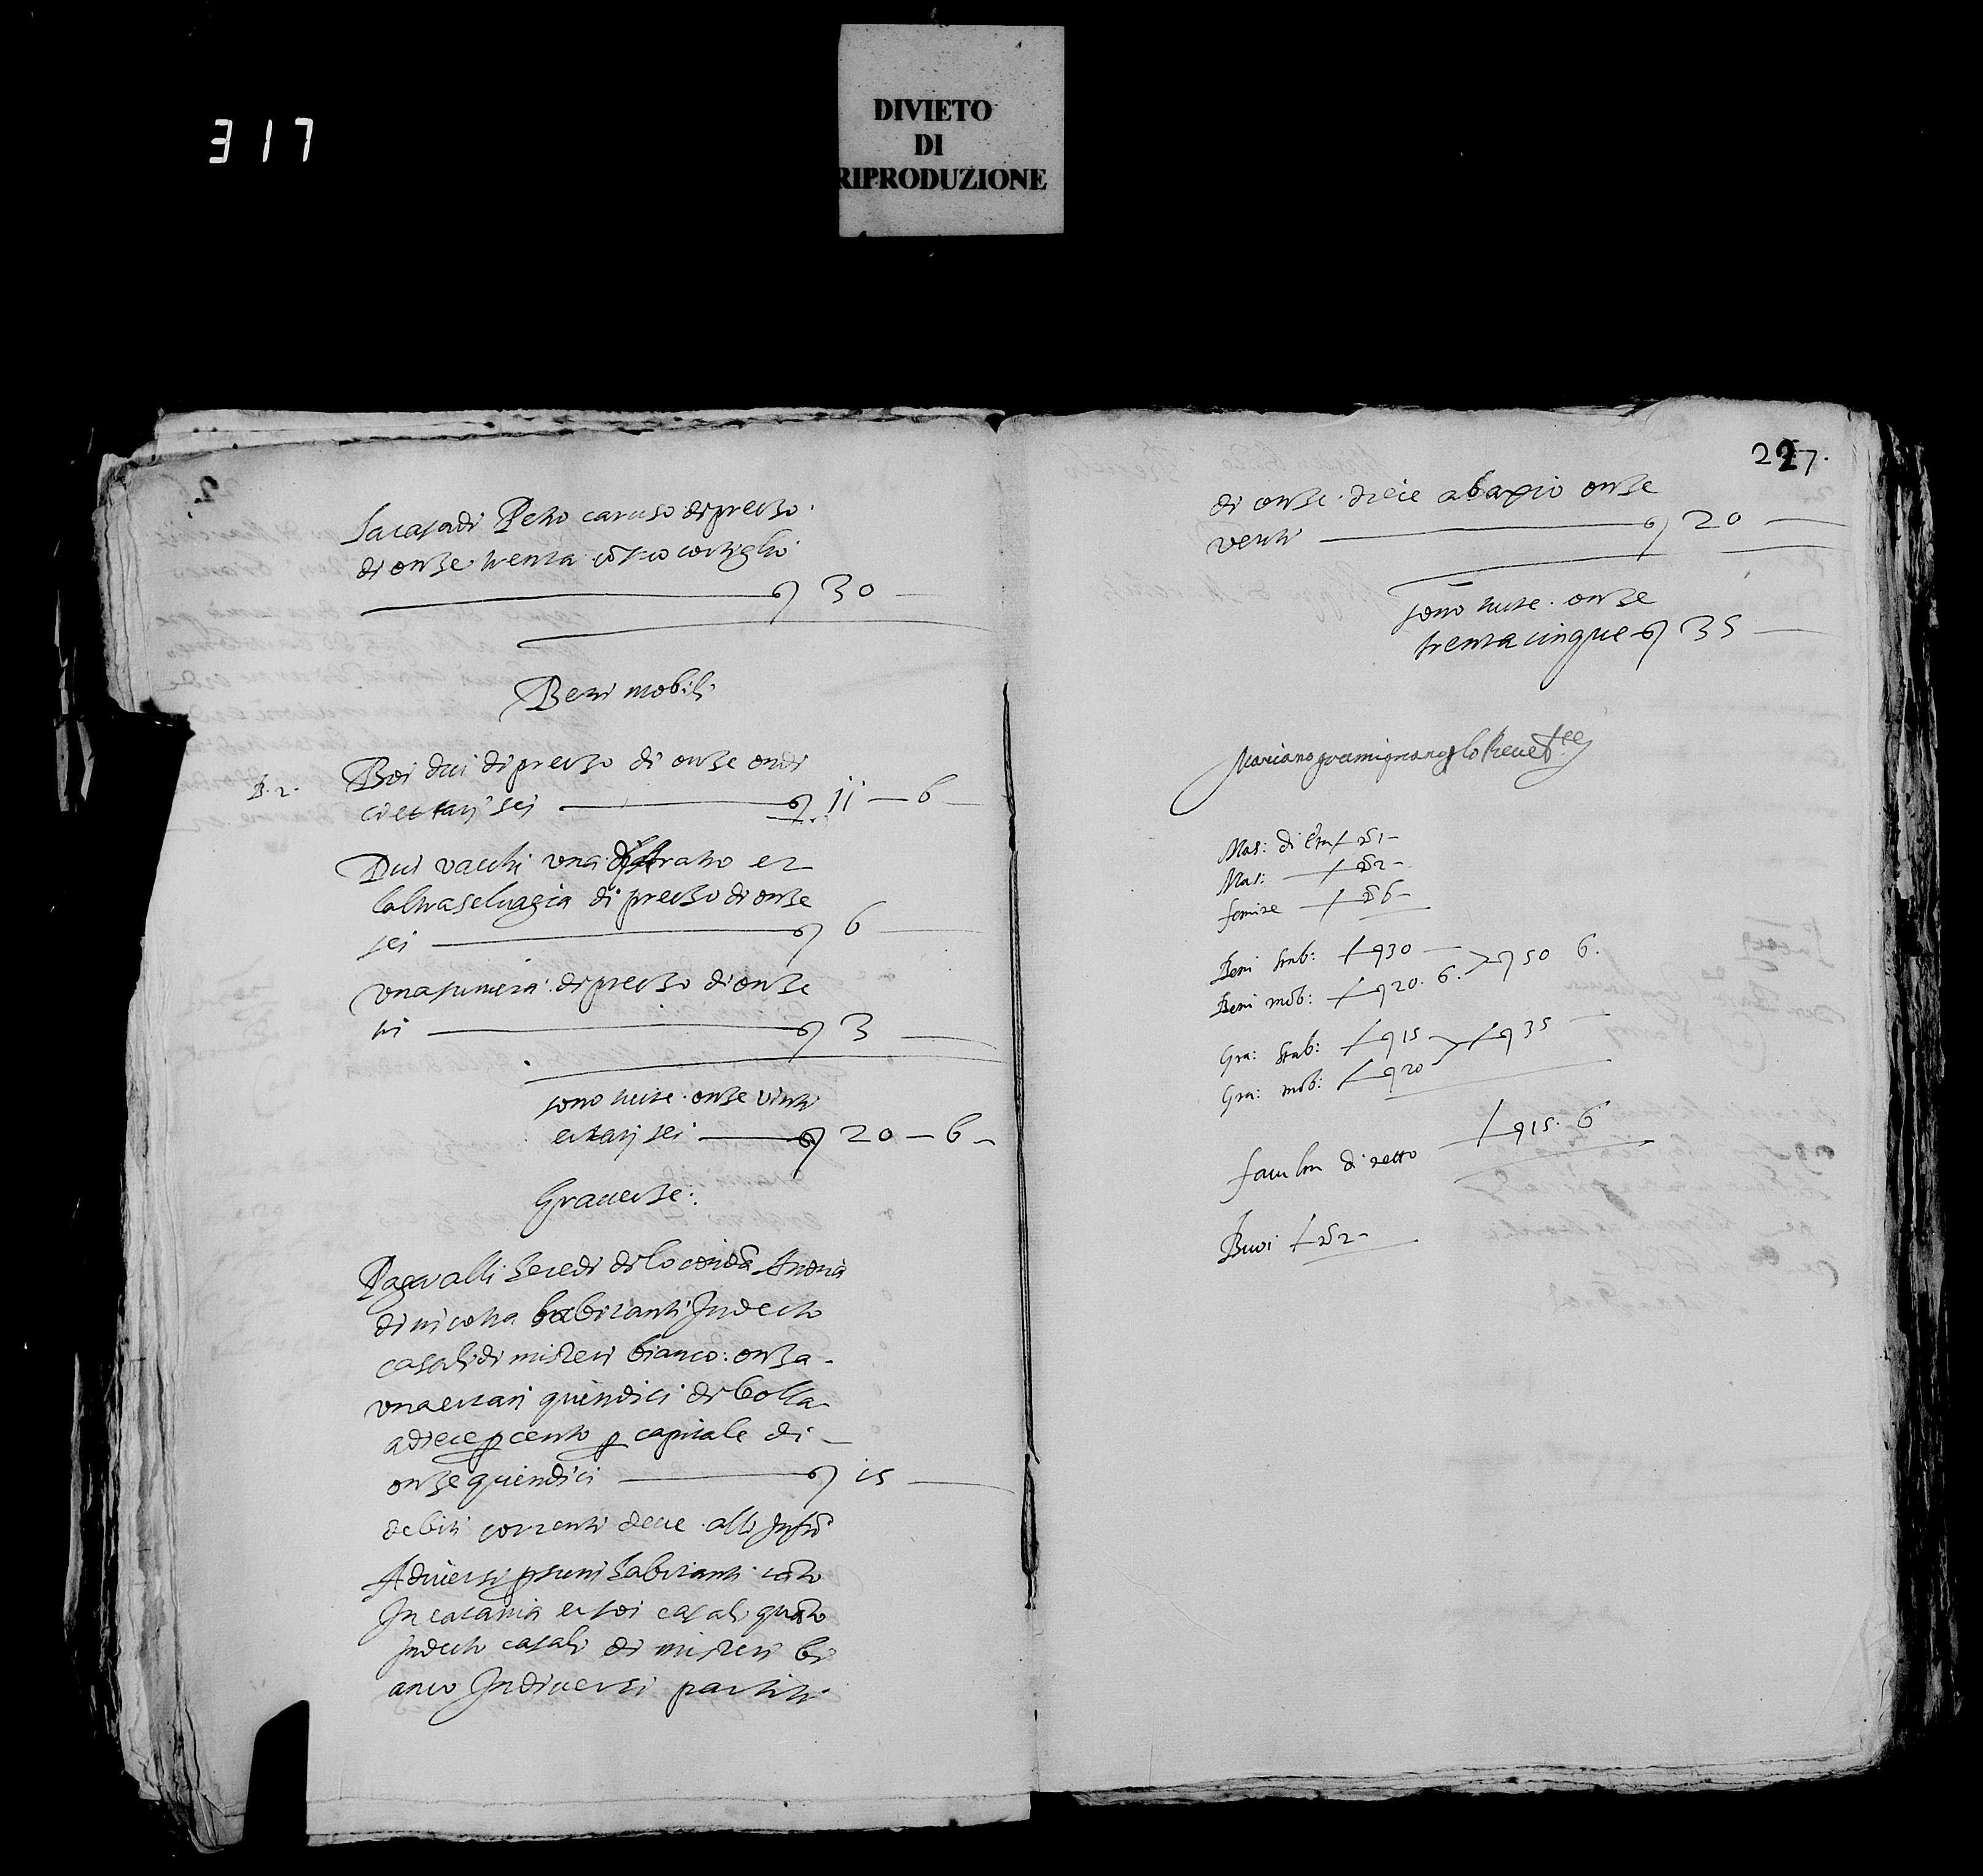 317
DIVIETO
DI
RIPRODUZIONE
la casa di Petro caruso di prezso
di onze trenta cô suo cortiglio
30
Beni mobili
B. 2.
Boi dui di prezso di onze ondi
ci et tarj sei 11 — 6
Dui vacchi una et
laltra seluagia di prezso di onze
sei 6
una di prezso di onze
tri 3
sono tutte onze vinti
et tarj sei 20 — 6
Grauezse:
Paga alli heredi di lo Antoni
di nicotra habitanti In decto
casali di misteri bianco: onza
una et tari quindici di bolla
a diece p cento p capitale di
onze quindici 15
debiti correnti deue alli Infri
A diuersi psuni habitanti tâto
In catania et soi casali quâto
In decto casali di misteri bi
anco In diuersi partiti
227.
di onze diece a bascio onze
venti 20
sono tutte onze
trenta cinque 35
Mariano gramignano
Mas: di 1
Mas: 2
femine 6
Beni stab: 30
Beni mob: 20. 6. 50 6.
Gra: stab: 15 35
Gra: mob: 20
facultà di netto 15. 6
Buoi 2